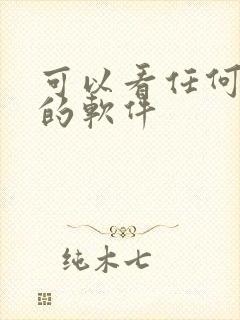 可以看任何
的軟件
纯木七